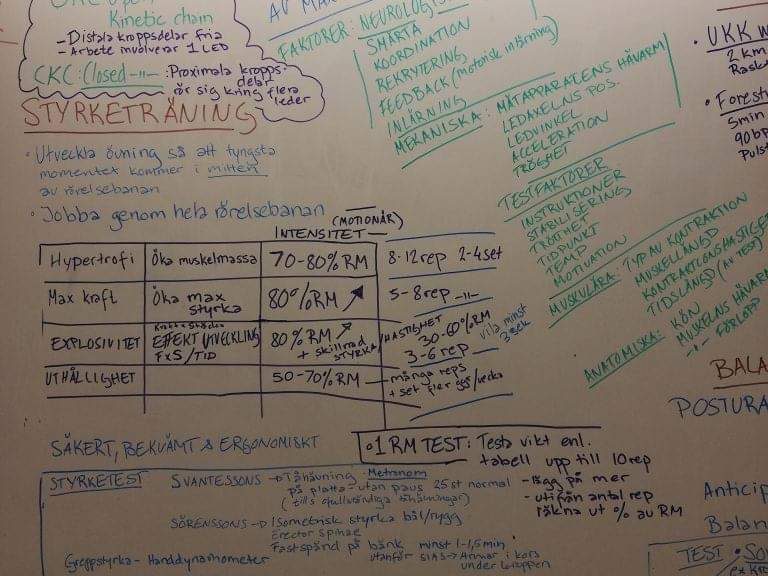 Kinetic chain
- Distala kroppsdelar fria
- Arbete involverar 1 LED
CKC: Closed -11- : Proximala kropps-
delar
rör sig kring flera
leder
STYRKETRÄNING
• Utveckla övning så att tyngsta
momentet kommer i mitten
av rörelsebanan
• Jobba genom hela rörelsebanan
(MOTIONÄR)
INTENSITET
Hypertrofi Öka muskelmassa 70-80% RM 8-12 rep 2-4 set
Max kraft Öka max styrka 80% RM ↗ 5-8 rep -11-
EXPLOSIVITET EFFEKTUTVECKLING FxS/TID 80% RM ↗ + skillnad STYRKA/HASTIGHET 30-60% RM
3-6 rep
vila minst
3 sek
UTHÅLLIGHET 50-70% RM många reps
+ set fler ggr/vecka
SÄKERT, BEKVÄMT & ERGONOMISKT
• 1 RM TEST: Testa vikt enl.
tabell upp till 10 rep
- lägg på mer
- utifrån antal rep
räkna ut % av RM
STYRKETEST
SVANTESSONS → Tåhävning Metronom
på platta - utan paus 25 st normal
(tills ofullständiga tåhävningar)
SÖRENSSONS → Isometrisk styrka bål/rygg
Erector Spinae
Fastspänd på bänk minst 1-1,5 min
utanför SIAS → Armar i kors
under kroppen
Greppstyrka - Handdynamometer
AV
FAKTORER: NEUROLOGIS
SMÄRTA
KOORDINATION
REKRYTERING
FEEDBACK (motorisk inlärning)
INLÄRNING
MEKANISKA: MÄTAPPARATENS HÄVARM
LEDAXELNS POS.
LEDVINKEL
ACCELERATION
TRÖGHET
TESTFAKTORER
INSTRUKTIONER
STABILISERING
TRÖTTHET
TIDPUNKT
TEMP
MOTIVATION
MUSKULÄRA: TYP AV KONTRAKTION
MUSKELLÄNGD
KONTRAKTIONSHASTIGHET
TIDSLÄNGD (AV TEST)
ANATOMISKA: KÖN
MUSKELNS HÄVARM
-11- FÖRLOPP
• UKK
2 km
Rask
• Forest
5min
90bp
Puls
BALA
POSTURA
Anticip
Balan
TEST: